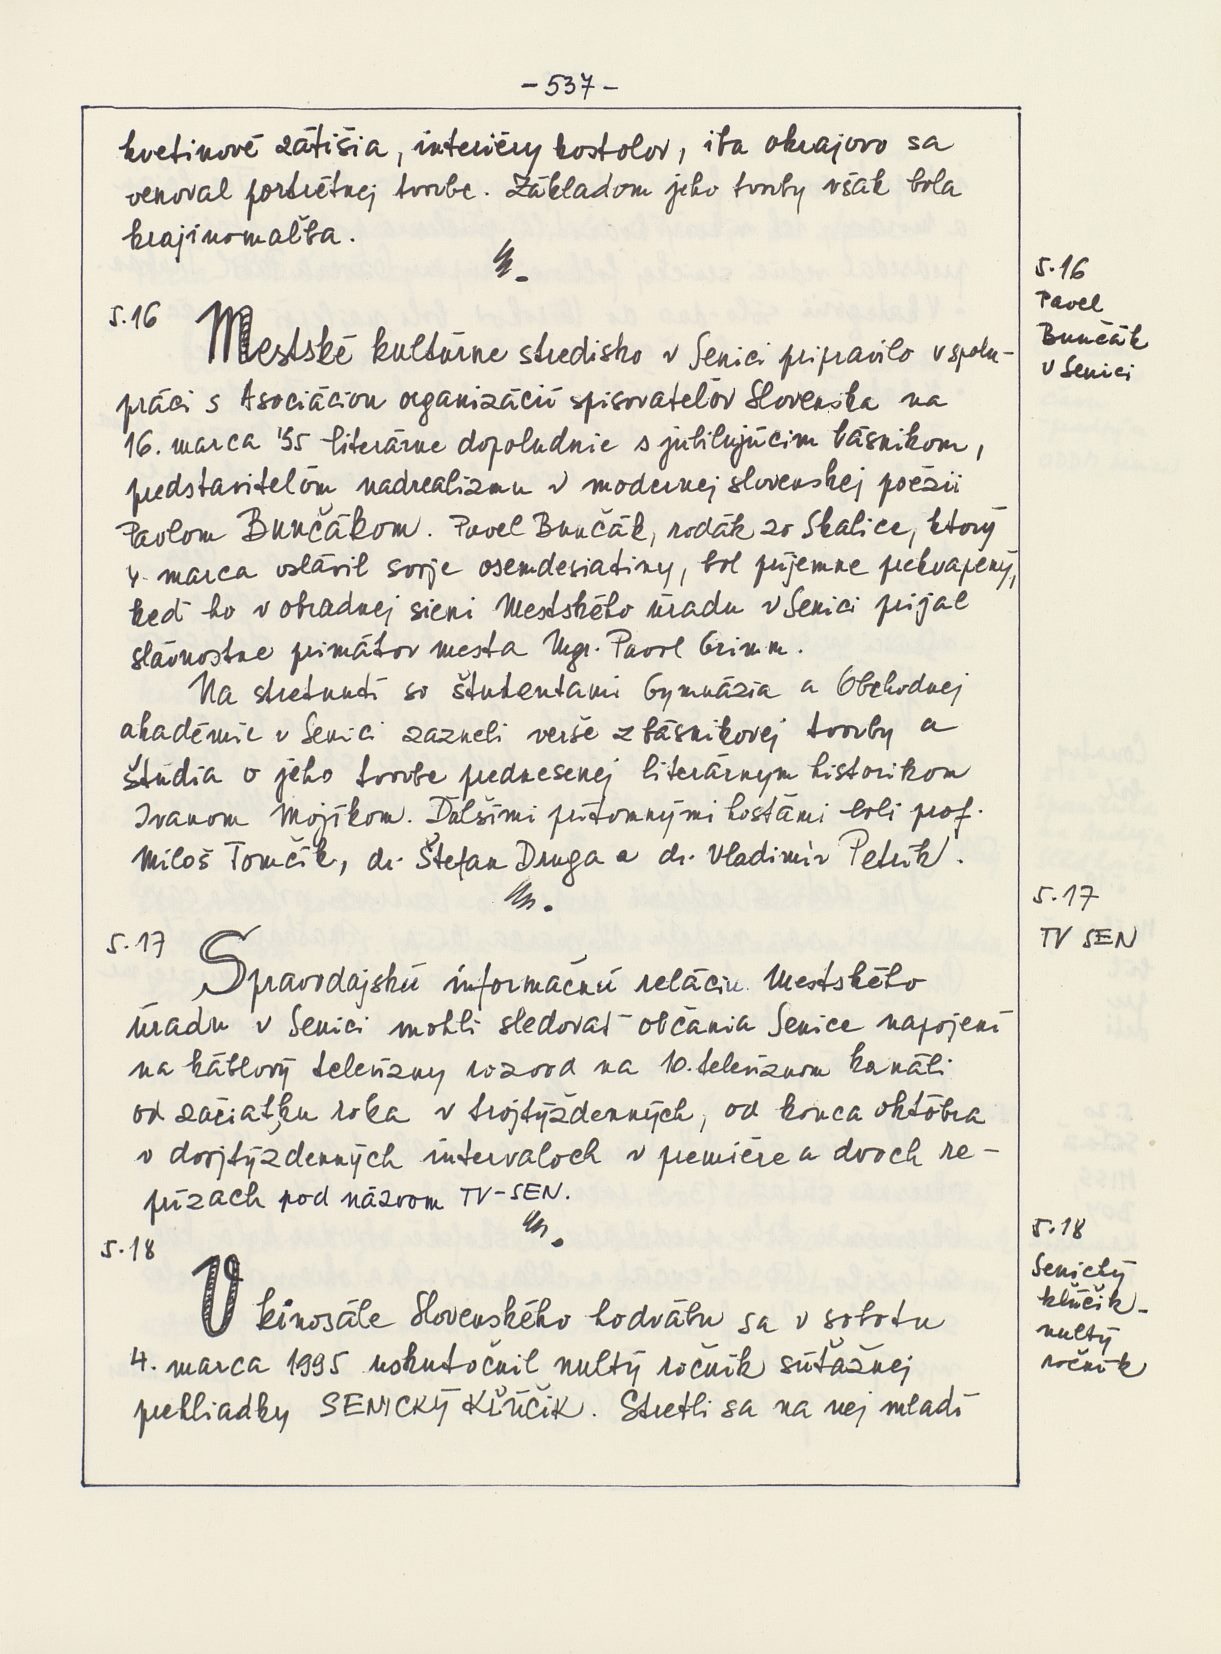 - 537 -
kvetinové zátišia, interiéry kostolov, iba okrajovo sa
venoval portrétnej tvorbe. Základom jeho tvorby však bola
krajinomaľba.
5.16
Pavel
Bunčák
v Senici
5.16
Mestské kultúrne stredisko v Senici pripravilo v spolu-
práci s Asociáciou organizácií spisovateľov Slovenska na
16. marca '95 literárne dopoludnie s jubilujúcim básnikom,
predstaviteľom nadrealizmu v modernej slovenskej poézii
Pavlom Bunčákom. Pavel Bunčák, rodák zo Skalice, ktorý
4. marca oslávil svoje osemdesiatiny, bol príjemne prekvapený,
keď ho v obradnej sieni Mestského úradu v Senici prijal
slávnostne primátor mesta Mgr. Pavol Grimm.
Na stretnutí so študentami Gymnázia a Obchodnej
akadémie v Senici zazneli verše z básnikovej tvorby a
štúdia o jeho tvorbe prednesenej literárnym historikom
Ivanom Mojíkom. Ďalšími prítomnými hosťami boli prof.
Miloš Tomčík, dr. Štefan Druga a dr. Vladimír Petrík.
5.17
TV SEN
5.17
Spravodajskú informačnú reláciu Mestského
úradu v Senici mohli sledovať občania Senice napojení
na káblový televízny rozvod na 10. televíznom kanáli
od začiatku roka v trojtýždenných, od konca októbra
v dvojtýždenných intervaloch v premiére a dvoch re-
prízach pod názvom TV-SEN.
5.18
Senický
kľúčik -
nultý
ročník
5.18
V kinosále Slovenského hodvábu sa v sobotu
4. marca 1995 uskutočnil nultý ročník súťažnej
prehliadky SENICKÝ KĽÚČIK. Stretli sa na nej mladí